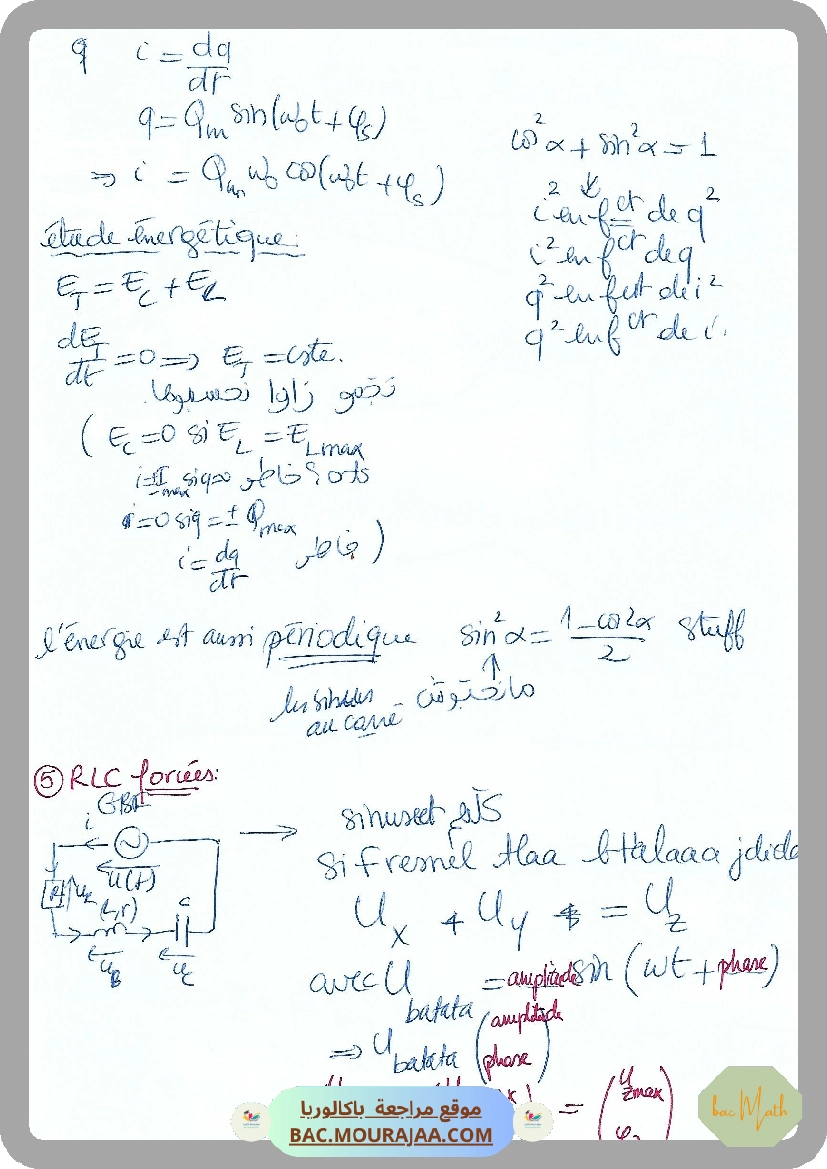 q i = dq/dt
q = Qm sin(ω₀t + φs)
⇒ i = Qm ω₀ cos(ω₀t + φs)
cos²α + sin²α = 1
i² en fct de q²
i² en fct de q
q² en fct de i²
q² en fct de i.
étude énergétique:
E_T = E_C + E_L
dE_T/dt = 0 ⇒ E_T = cste.
نجمو زادا نحسبوها
( E_C = 0 si E_L = E_Lmax
i = ±I_max si q = 0 خاطر
i = 0 si q = ± Q_max
i = dq/dt خاطر )
l'énergie est aussi périodique sin²α = (1 - cos2α)/2 stuff
↑
les sinus au carré مانحبوش
⑤ RLC forcées:
GBF
i
u(t)
(L,r)
C
u_B
u_C
→ sinus كلام
si Fresnel tlaa btalaaa jdida
U_x + U_y = U_z
avec U_batata = amplitude sin (ωt + phase)
⇒ U_batata (amplitude
phase)
= (U_zmax
موقع مراجعة باكالوريا
BAC.MOURAJAA.COM
bac Math